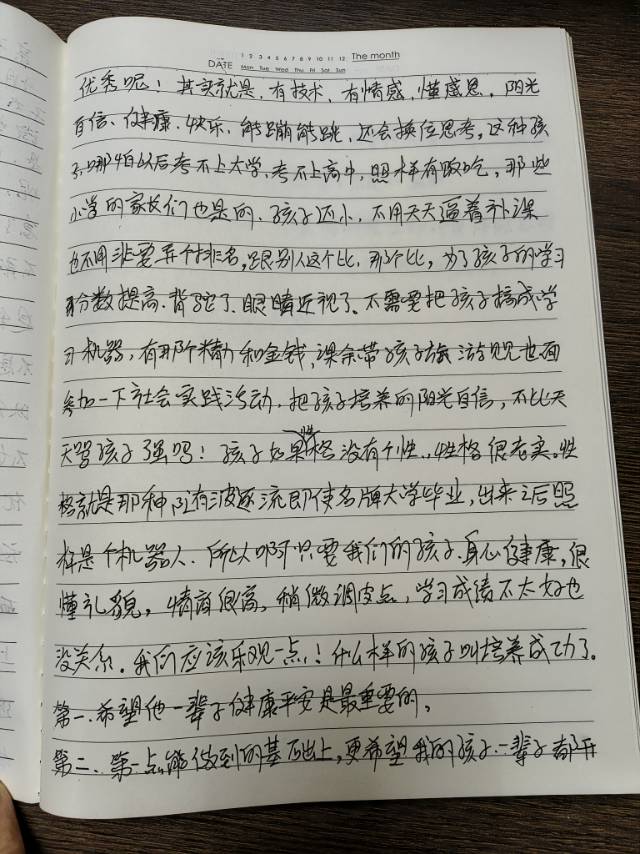 1 2 3 4 5 6 7 8 9 10 11 12 The month
DATE Mon Tue Wed Thu Fri Sat Sun
优秀呢！其实就是，有技术，有情感，懂感恩，阳光
自信、健康、快乐、能蹦能跳，还会换位思考，这种孩
子，哪怕以后考不上大学，考不上高中，照样有饭吃，那些
小学的家长们也是的，孩子还小，不用天天逼着补课
也不用非要弄个排名，跟别人这个比，那个比，为了孩子的学习
分数提高，背驼了，眼睛近视了，不需要把孩子搞成学
习机器，有那个精力和金钱，课余带孩子旅游见世面
参加一下社会实践活动，把孩子培养的阳光自信，不比天
天骂孩子强吗！孩子如果性格没有个性，性格很老实。性
格就是那种随波逐流即使名牌大学毕业，出来之后照
样是个机器人，所以啊只要我们的孩子，身心健康，很
懂礼貌，情商很高，稍微调皮点，学习成绩不太好也
没关系，我们应该乐观一点！什么样的孩子叫培养成功了。
第一、希望他一辈子健康平安是最重要的，
第二、第一点能做到的基础上，更希望我的孩子一辈子都开